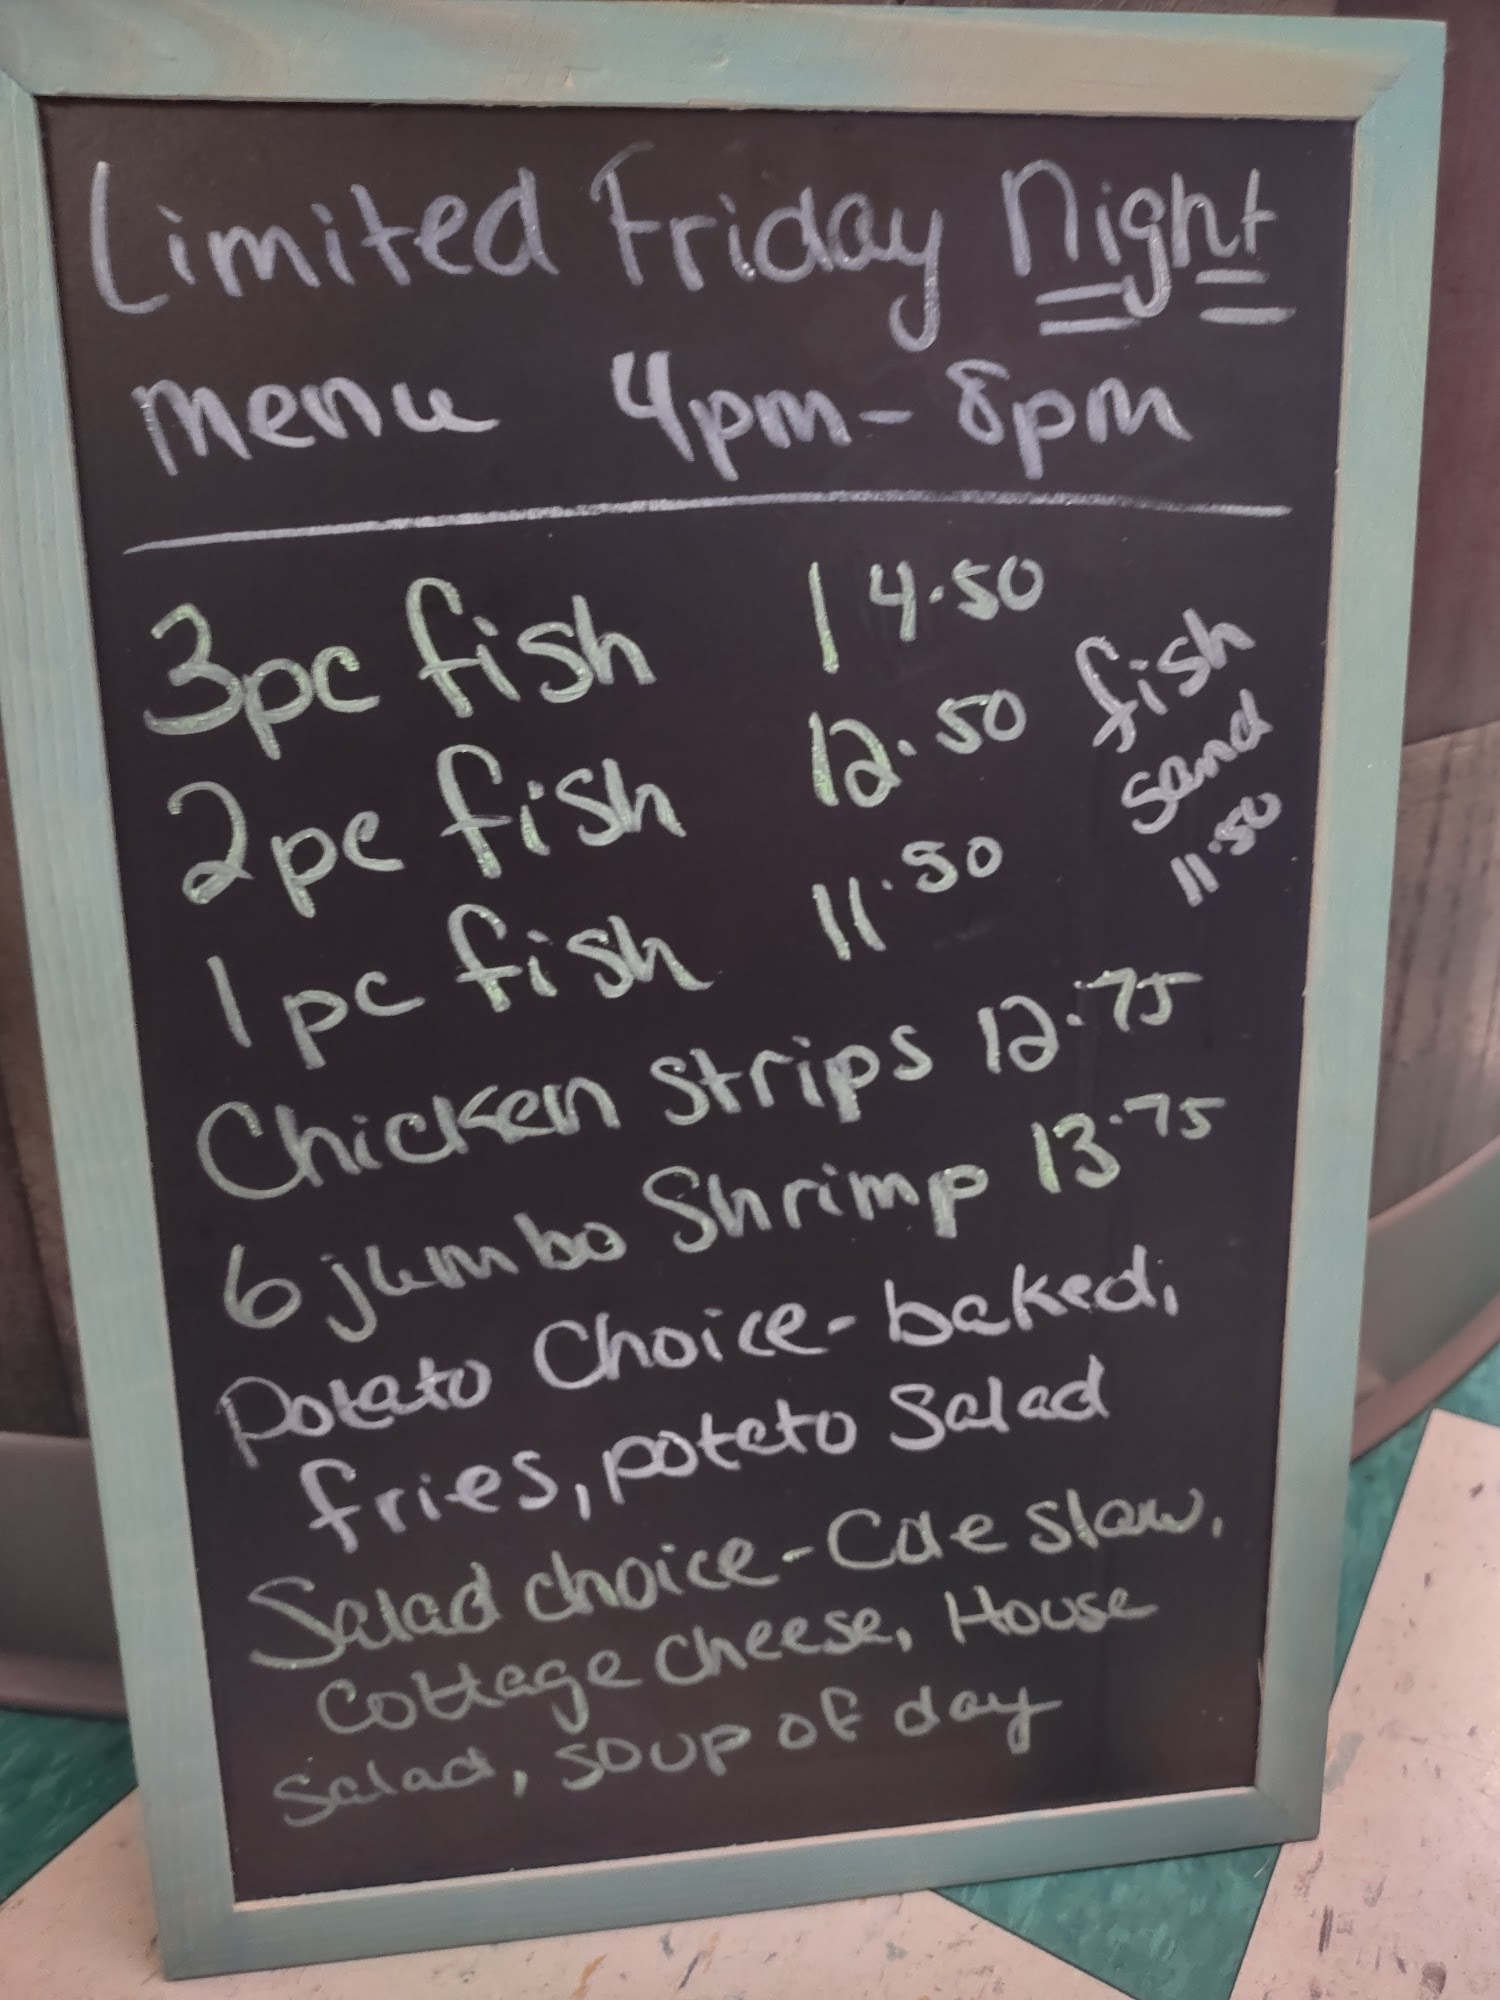 Limited Friday Night
menu 4pm-8pm
3pc fish 14.50
2pc fish 12.50
1pc fish 11.50
fish
sand
11.50
Chicken Strips 12.75
6 jumbo Shrimp 13.75
Potato Choice-baked,
fries, potato Salad
Salad choice-Cole slaw,
Cottage cheese, House
Salad, soup of day